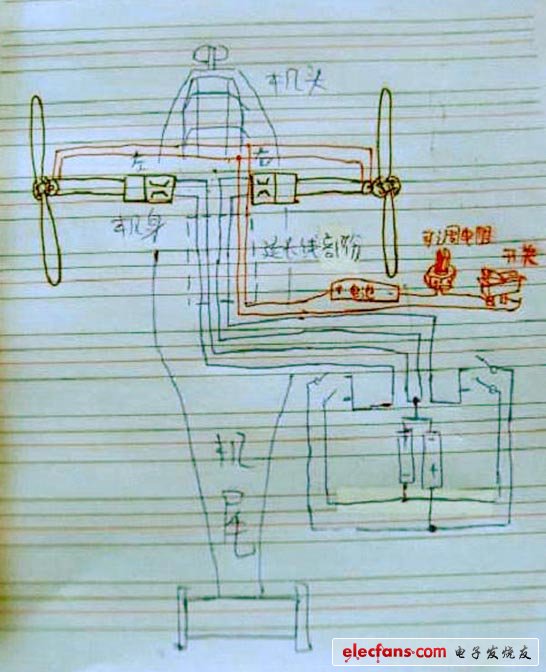 机头
左
右
机身
延长线部份
可调电阻
开关
+ 电池 -
机
尾
elecfans.com 电子发烧友